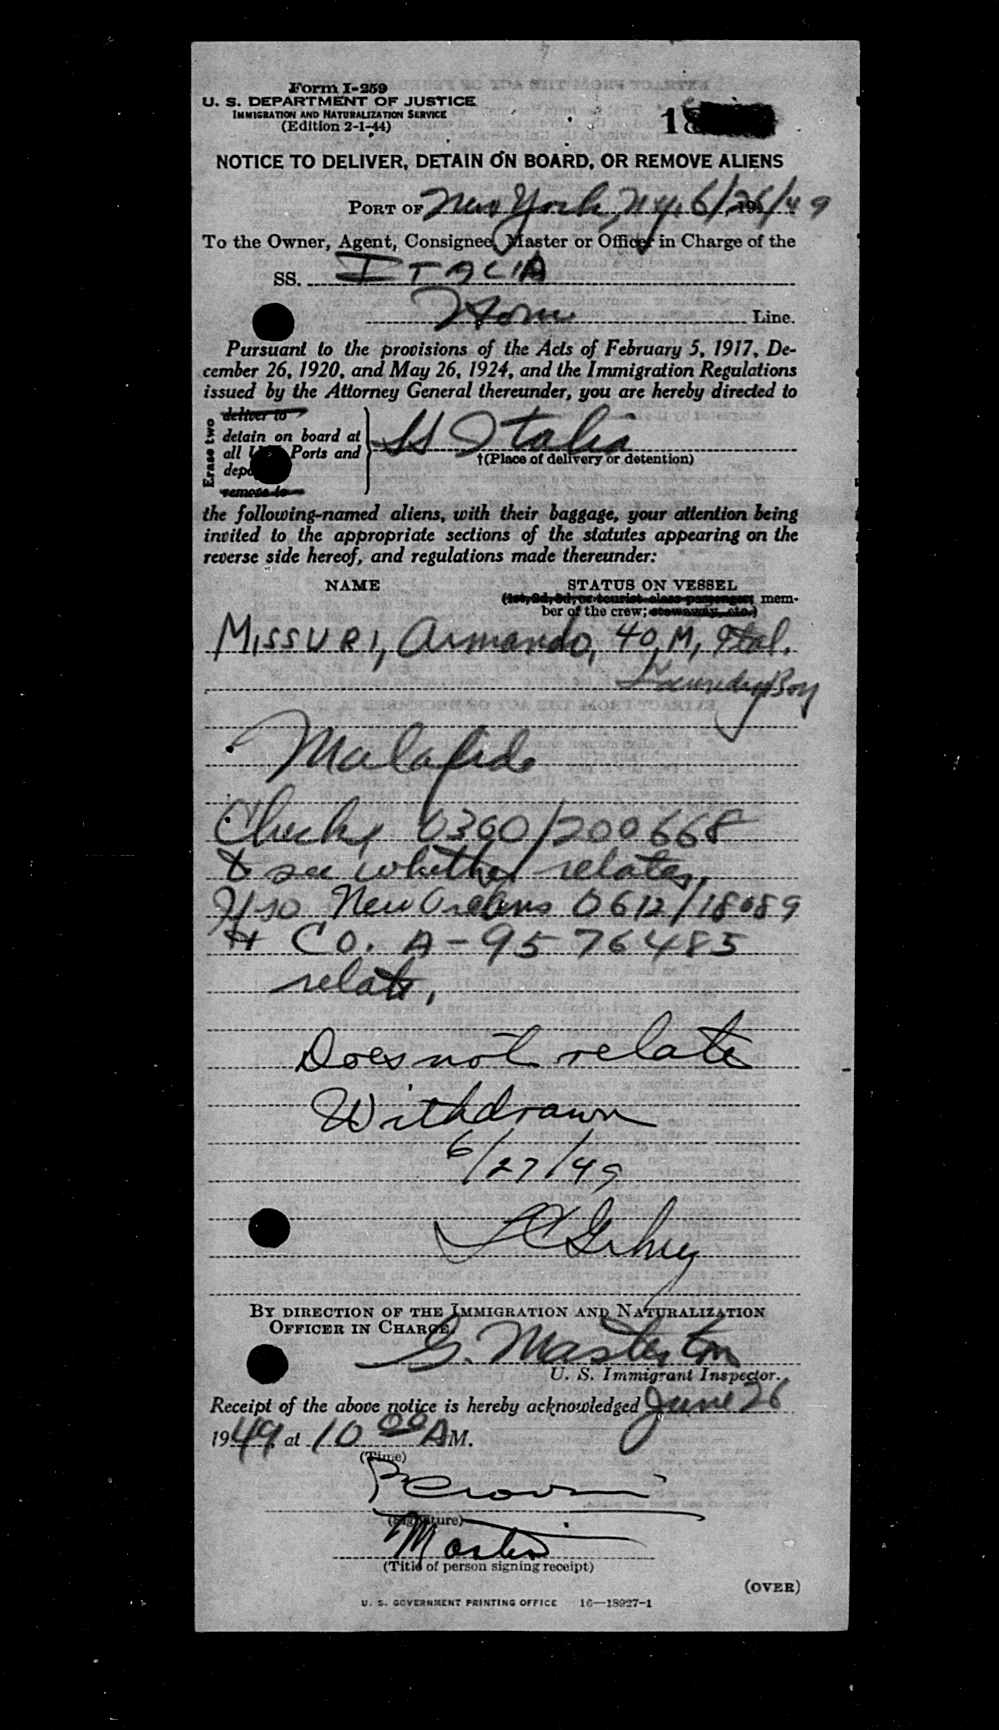 Form I-259
U. S. DEPARTMENT OF JUSTICE
IMMIGRATION AND NATURALIZATION SERVICE
(Edition 2-1-44)
18
NOTICE TO DELIVER, DETAIN ON BOARD, OR REMOVE ALIENS
PORT OF New York, N.Y. 6/26/49
To the Owner, Agent, Consignee, Master or Officer in Charge of the
SS. ITALIA
Home Line.
Pursuant to the provisions of the Acts of February 5, 1917, De-
cember 26, 1920, and May 26, 1924, and the Immigration Regulations
issued by the Attorney General thereunder, you are hereby directed to
Erase two
deliver to
detain on board at
all Ports and
remove to
SS Italia
†(Place of delivery or detention)
the following-named aliens, with their baggage, your attention being
invited to the appropriate sections of the statutes appearing on the
reverse side hereof, and regulations made thereunder:
NAME STATUS ON VESSEL
(1st, 2d, 3d, or tourist class passenger; mem-
ber of the crew; stowaway, etc.)
MISSURI, Armando, 40, M, Ital.
Laundry Boy
Malafide
Check 0300/200668
& see whether relates,
Also New Orleans 0612/18089
& CO. A-9576485
relate,
Does not relate
Withdrawn
6/27/49
BY DIRECTION OF THE IMMIGRATION AND NATURALIZATION
OFFICER IN CHARGE.
G. Masterton
U. S. Immigrant Inspector.
Receipt of the above notice is hereby acknowledged June 26
1949, at 10 00 AM.
(Time)
(Signature)
Master
(Title of person signing receipt)
(OVER)
U. S. GOVERNMENT PRINTING OFFICE 16—18927-1